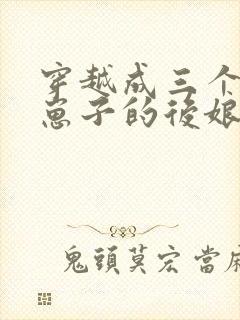 穿越成三个
崽子的後娘
鬼頭莫宏當